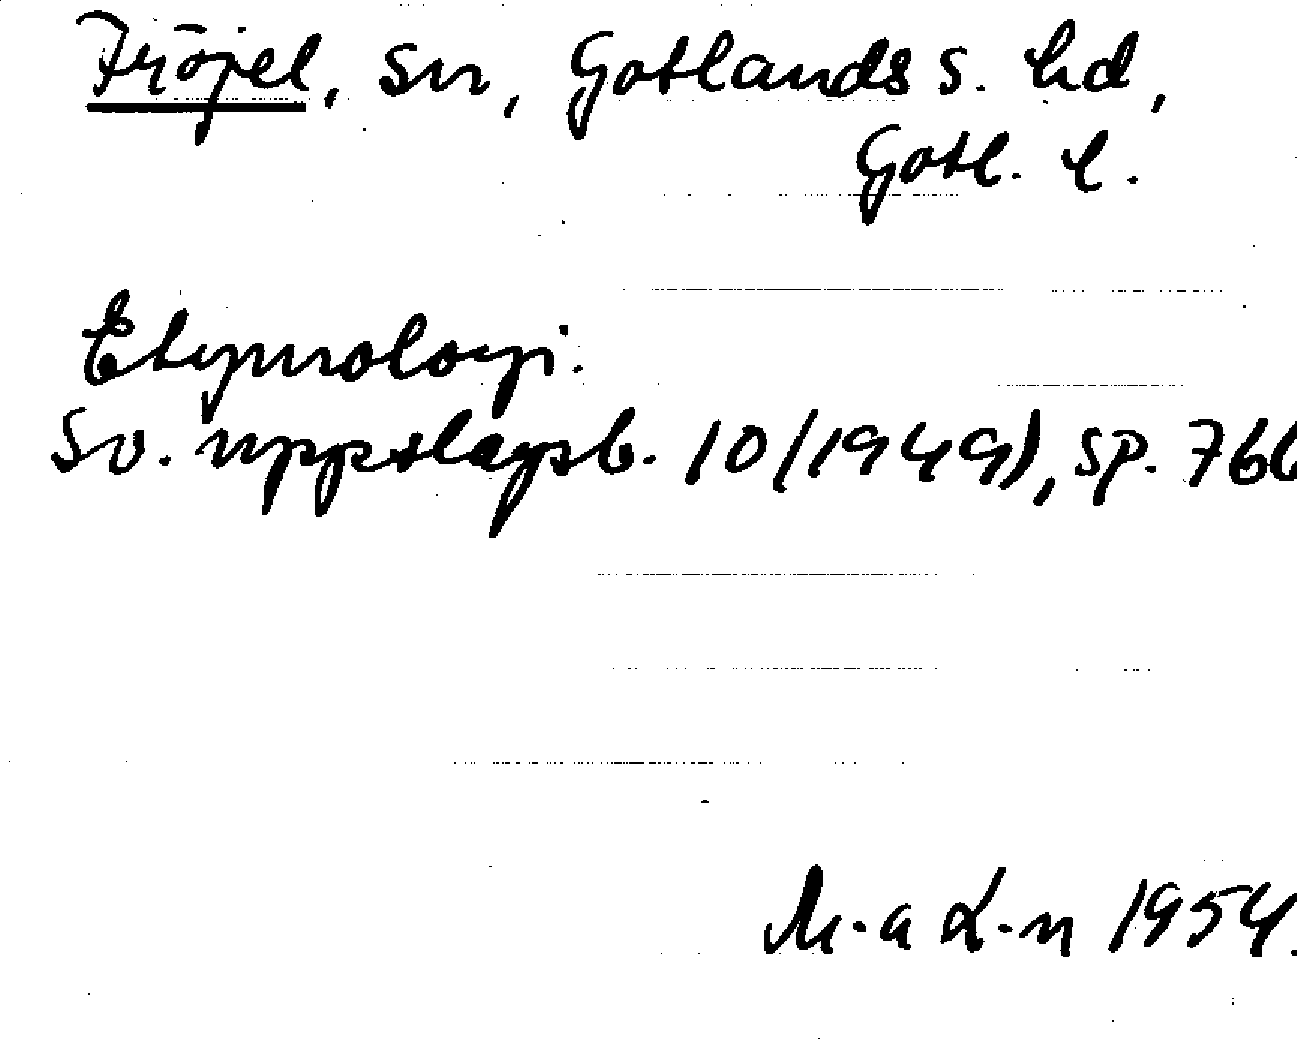 Fröjel, sn, Gotlands s. hd,
Gotl. l.
Etymologi.
Sv. uppslagsb. 10/1949), sp. 766
M-a L-n 1954.